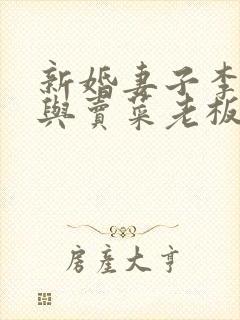 新婚妻子李
與賣菜老板
房產大亨